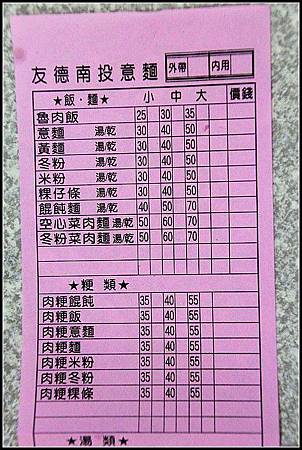 友德南投意麵 外帶 內用
★飯・麵★ 小 中 大 價錢
魯肉飯 25 30 35
意麵 湯/乾 30 40 50
黃麵 湯/乾 30 40 50
冬粉 湯/乾 30 40 50
米粉 湯/乾 30 40 50
粿仔條 湯/乾 30 40 50
餛飩麵 湯/乾 40 50 70
空心菜肉麵 湯/乾 50 60 70
冬粉菜肉麵 湯/乾 50 60 70
★粳 類★
肉粳餛飩 35 40 55
肉粳飯 35 40 55
肉粳意麵 35 40 55
肉粳麵 35 40 55
肉粳米粉 35 40 55
肉粳冬粉 35 40 55
肉粳粿條 35 40 55
★湯 類★